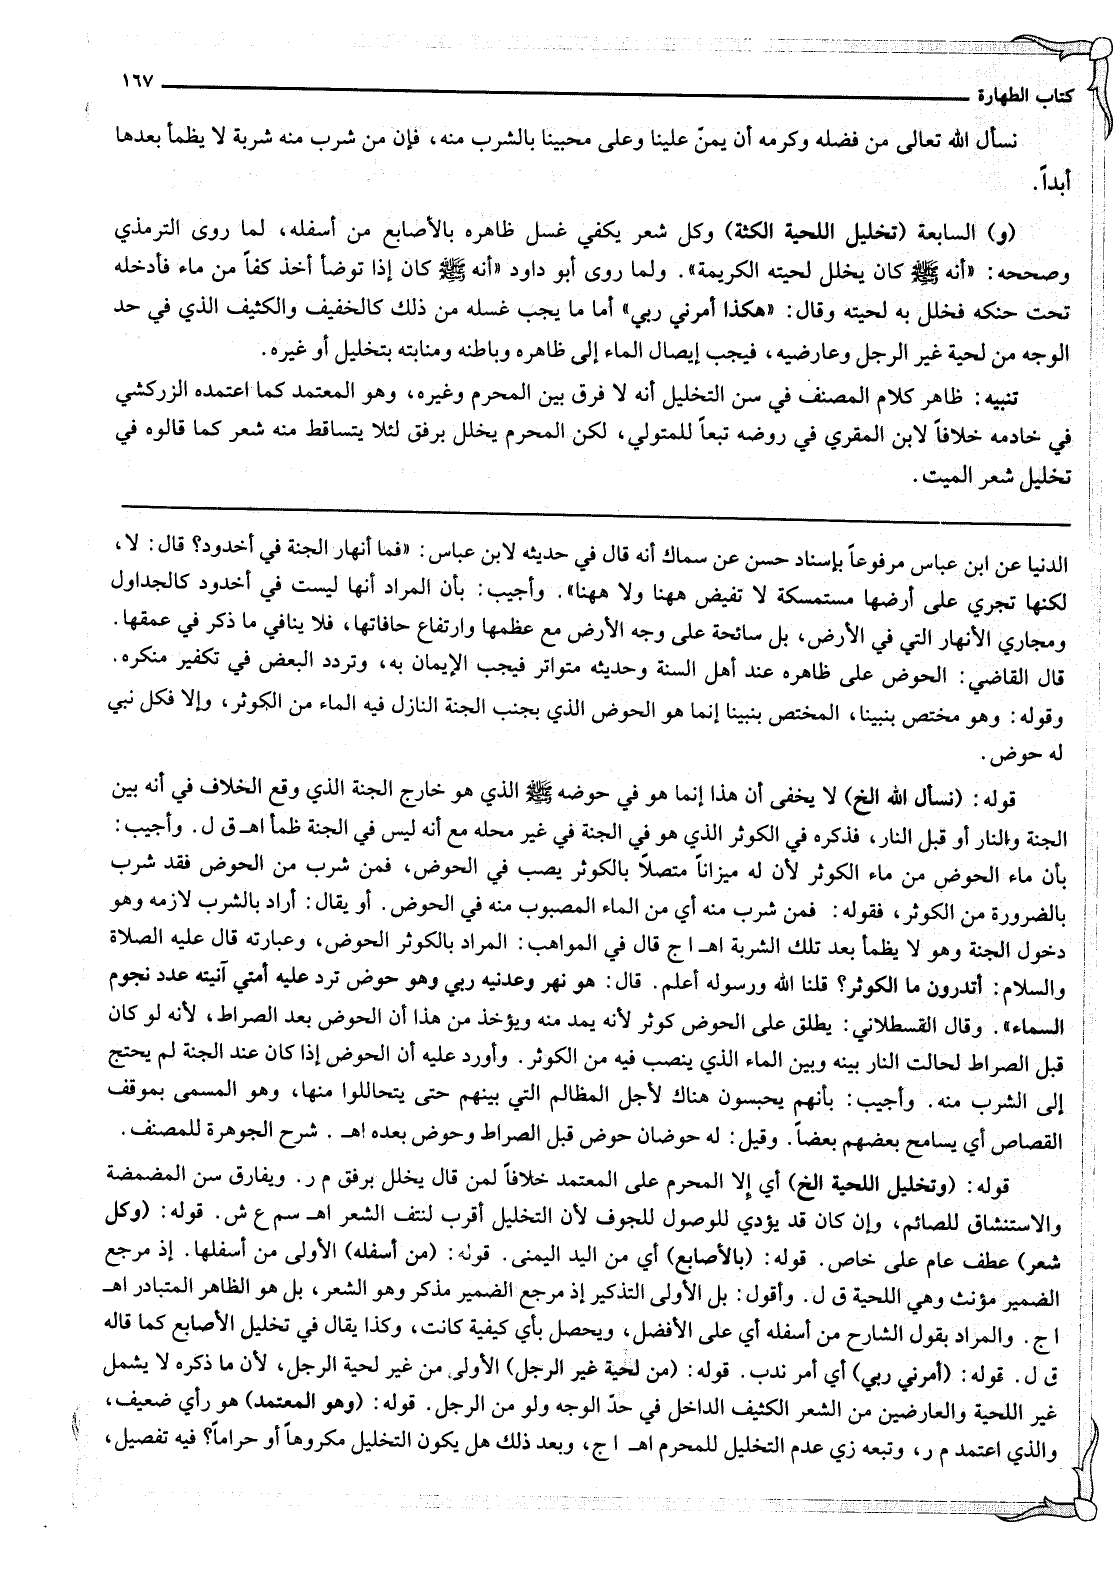 كتاب الطهارة ١٦٧
نسأل الله تعالى من فضله وكرمه أن يمنّ علينا وعلى محبينا بالشرب منه، فإن من شرب منه شربة لا يظمأ بعدها
أبداً.
(و) السابعة (تخليل اللحية الكثة) وكل شعر يكفي غسل ظاهره بالأصابع من أسفله، لما روى الترمذي
وصححه: «أنه ﷺ كان يخلل لحيته الكريمة». ولما روى أبو داود «أنه ﷺ كان إذا توضأ أخذ كفاً من ماء فأدخله
تحت حنكه فخلل به لحيته وقال: «هكذا أمرني ربي» أما ما يجب غسله من ذلك كالخفيف والكثيف الذي في حد
الوجه من لحية غير الرجل وعارضيه، فيجب إيصال الماء إلى ظاهره وباطنه ومنابته بتخليل أو غيره.
تنبيه: ظاهر كلام المصنف في سن التخليل أنه لا فرق بين المحرم وغيره، وهو المعتمد كما اعتمده الزركشي
في خادمه خلافاً لابن المقري في روضه تبعاً للمتولي، لكن المحرم يخلل برفق لئلا يتساقط منه شعر كما قالوه في
تخليل شعر الميت.
الدنيا عن ابن عباس مرفوعاً بإسناد حسن عن سماك أنه قال في حديثه لابن عباس: «فما أنهار الجنة في أخدود؟ قال: لا،
لكنها تجري على أرضها مستمسكة لا تفيض ههنا ولا ههنا». وأجيب: بأن المراد أنها ليست في أخدود كالجداول
ومجاري الأنهار التي في الأرض، بل سائحة على وجه الأرض مع عظمها وارتفاع حافاتها، فلا ينافي ما ذكر في عمقها.
قال القاضي: الحوض على ظاهره عند أهل السنة وحديثه متواتر فيجب الإيمان به، وتردد البعض في تكفير منكره.
وقوله: وهو مختص بنبينا، المختص بنبينا إنما هو الحوض الذي بجنب الجنة النازل فيه الماء من الكوثر، وإلا فكل نبي
له حوض.
قوله: (نسأل الله الخ) لا يخفى أن هذا إنما هو في حوضه ﷺ الذي هو خارج الجنة الذي وقع الخلاف في أنه بين
الجنة والنار أو قبل النار، فذكره في الكوثر الذي هو في الجنة في غير محله مع أنه ليس في الجنة ظمأ اهـ ق ل. وأجيب:
بأن ماء الحوض من ماء الكوثر لأن له ميزاناً متصلاً بالكوثر يصب في الحوض، فمن شرب من الحوض فقد شرب
بالضرورة من الكوثر، فقوله: فمن شرب منه أي من الماء المصبوب منه في الحوض. أو يقال: أراد بالشرب لازمه وهو
دخول الجنة وهو لا يظمأ بعد تلك الشربة اهـ ا ج قال في المواهب: المراد بالكوثر الحوض، وعبارته قال عليه الصلاة
والسلام: أتدرون ما الكوثر؟ قلنا الله ورسوله أعلم. قال: هو نهر وعدنيه ربي وهو حوض ترد عليه أمتي آنيته عدد نجوم
السماء». وقال القسطلاني: يطلق على الحوض كوثر لأنه يمد منه ويؤخذ من هذا أن الحوض بعد الصراط، لأنه لو كان
قبل الصراط لحالت النار بينه وبين الماء الذي ينصب فيه من الكوثر. وأورد عليه أن الحوض إذا كان عند الجنة لم يحتج
إلى الشرب منه. وأجيب: بأنهم يحبسون هناك لأجل المظالم التي بينهم حتى يتحاللوا منها، وهو المسمى بموقف
القصاص أي يسامح بعضهم بعضاً. وقيل: له حوضان حوض قبل الصراط وحوض بعده اهـ. شرح الجوهرة للمصنف.
قوله: (وتخليل اللحية الخ) أي إلا المحرم على المعتمد خلافاً لمن قال يخلل برفق م ر. ويفارق سن المضمضة
والاستنشاق للصائم، وإن كان قد يؤدي للوصول للجوف لأن التخليل أقرب لنتف الشعر اهـ سم ع ش. قوله: (وكل
شعر) عطف عام على خاص. قوله: (بالأصابع) أي من اليد اليمنى. قوله: (من أسفله) الأولى من أسفلها. إذ مرجع
الضمير مؤنث وهي اللحية ق ل. وأقول: بل الأولى التذكير إذ مرجع الضمير مذكر وهو الشعر، بل هو الظاهر المتبادر اهـ
ا ج. والمراد بقول الشارح من أسفله أي على الأفضل، ويحصل بأي كيفية كانت، وكذا يقال في تخليل الأصابع كما قاله
ق ل. قوله: (أمرني ربي) أي أمر ندب. قوله: (من لحية غير الرجل) الأولى من غير لحية الرجل، لأن ما ذكره لا يشمل
غير اللحية والعارضين من الشعر الكثيف الداخل في حدّ الوجه ولو من الرجل. قوله: (وهو المعتمد) هو رأي ضعيف،
والذي اعتمد م ر، وتبعه زي عدم التخليل للمحرم اهـ ا ج، وبعد ذلك هل يكون التخليل مكروهاً أو حراماً؟ فيه تفصيل،